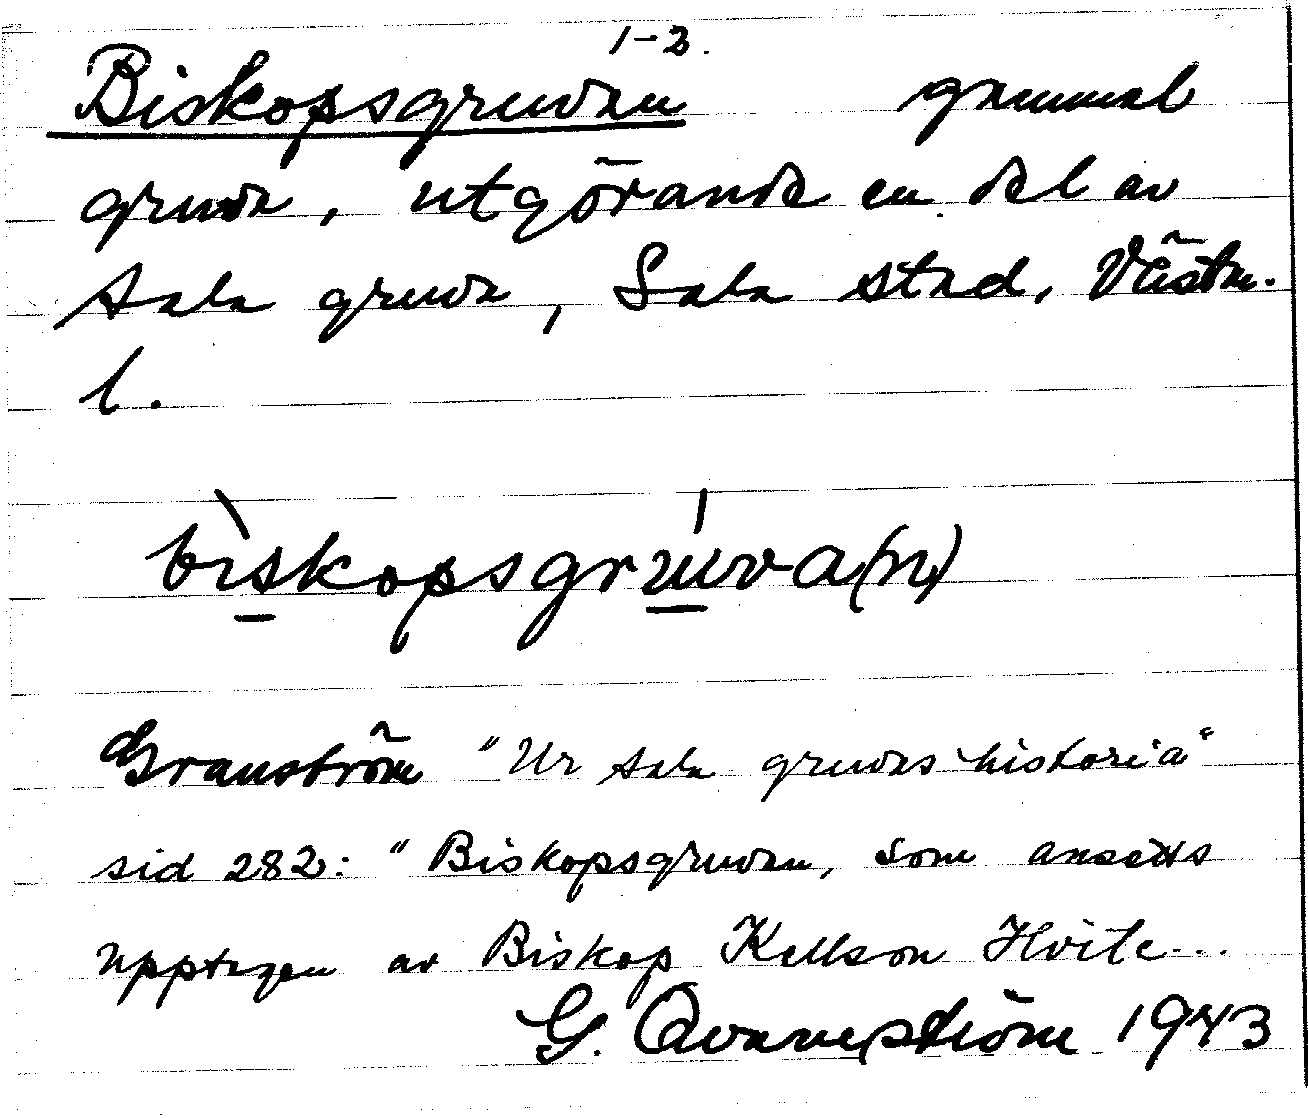 1-2.
Biskopsgruvan gammal
gruva, utgörande en del av
Sala gruva, Sala stad, Västm.
l.
bìskopsgrúva(n)
Granström "Ur Sala gruvas historia"
sid 282: "Biskopsgruvan, som ansetts
upptagen av Biskop Kettson Hvite...
G. Qvarnström 1943